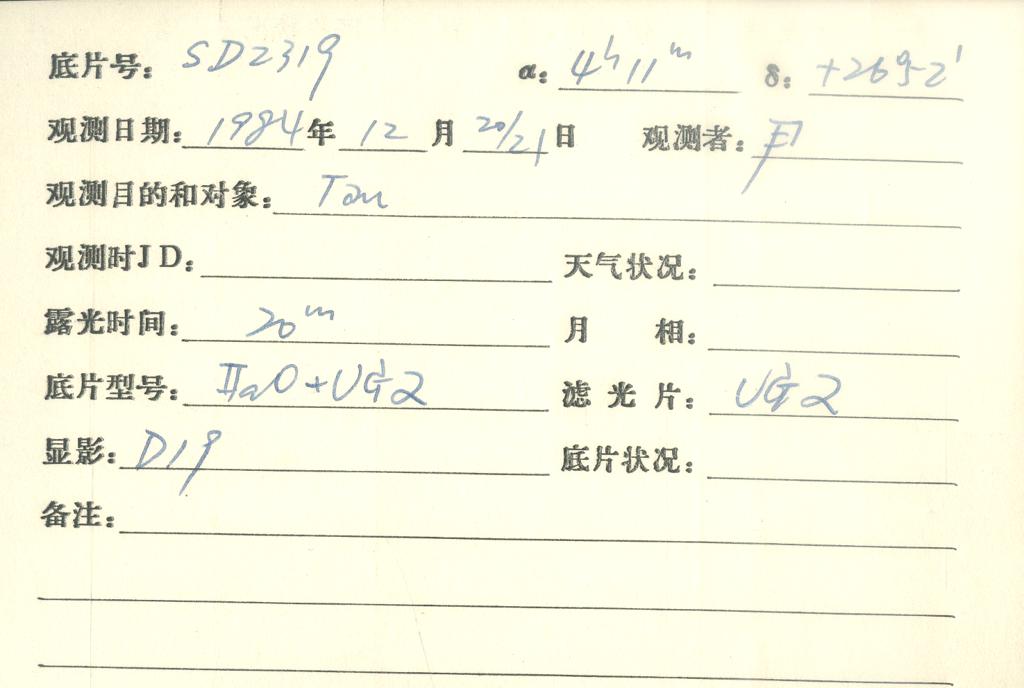 底片号: SD2319 α: 4h11m δ: +26°52'
观测日期: 1984年 12月 20/21日 观测者:
观测目的和对象: Tau
观测时JD:
天气状况:
露光时间: 20m
月 相:
底片型号: IIaO+UG2 滤光片: UG2
显影: D19 底片状况:
备注: